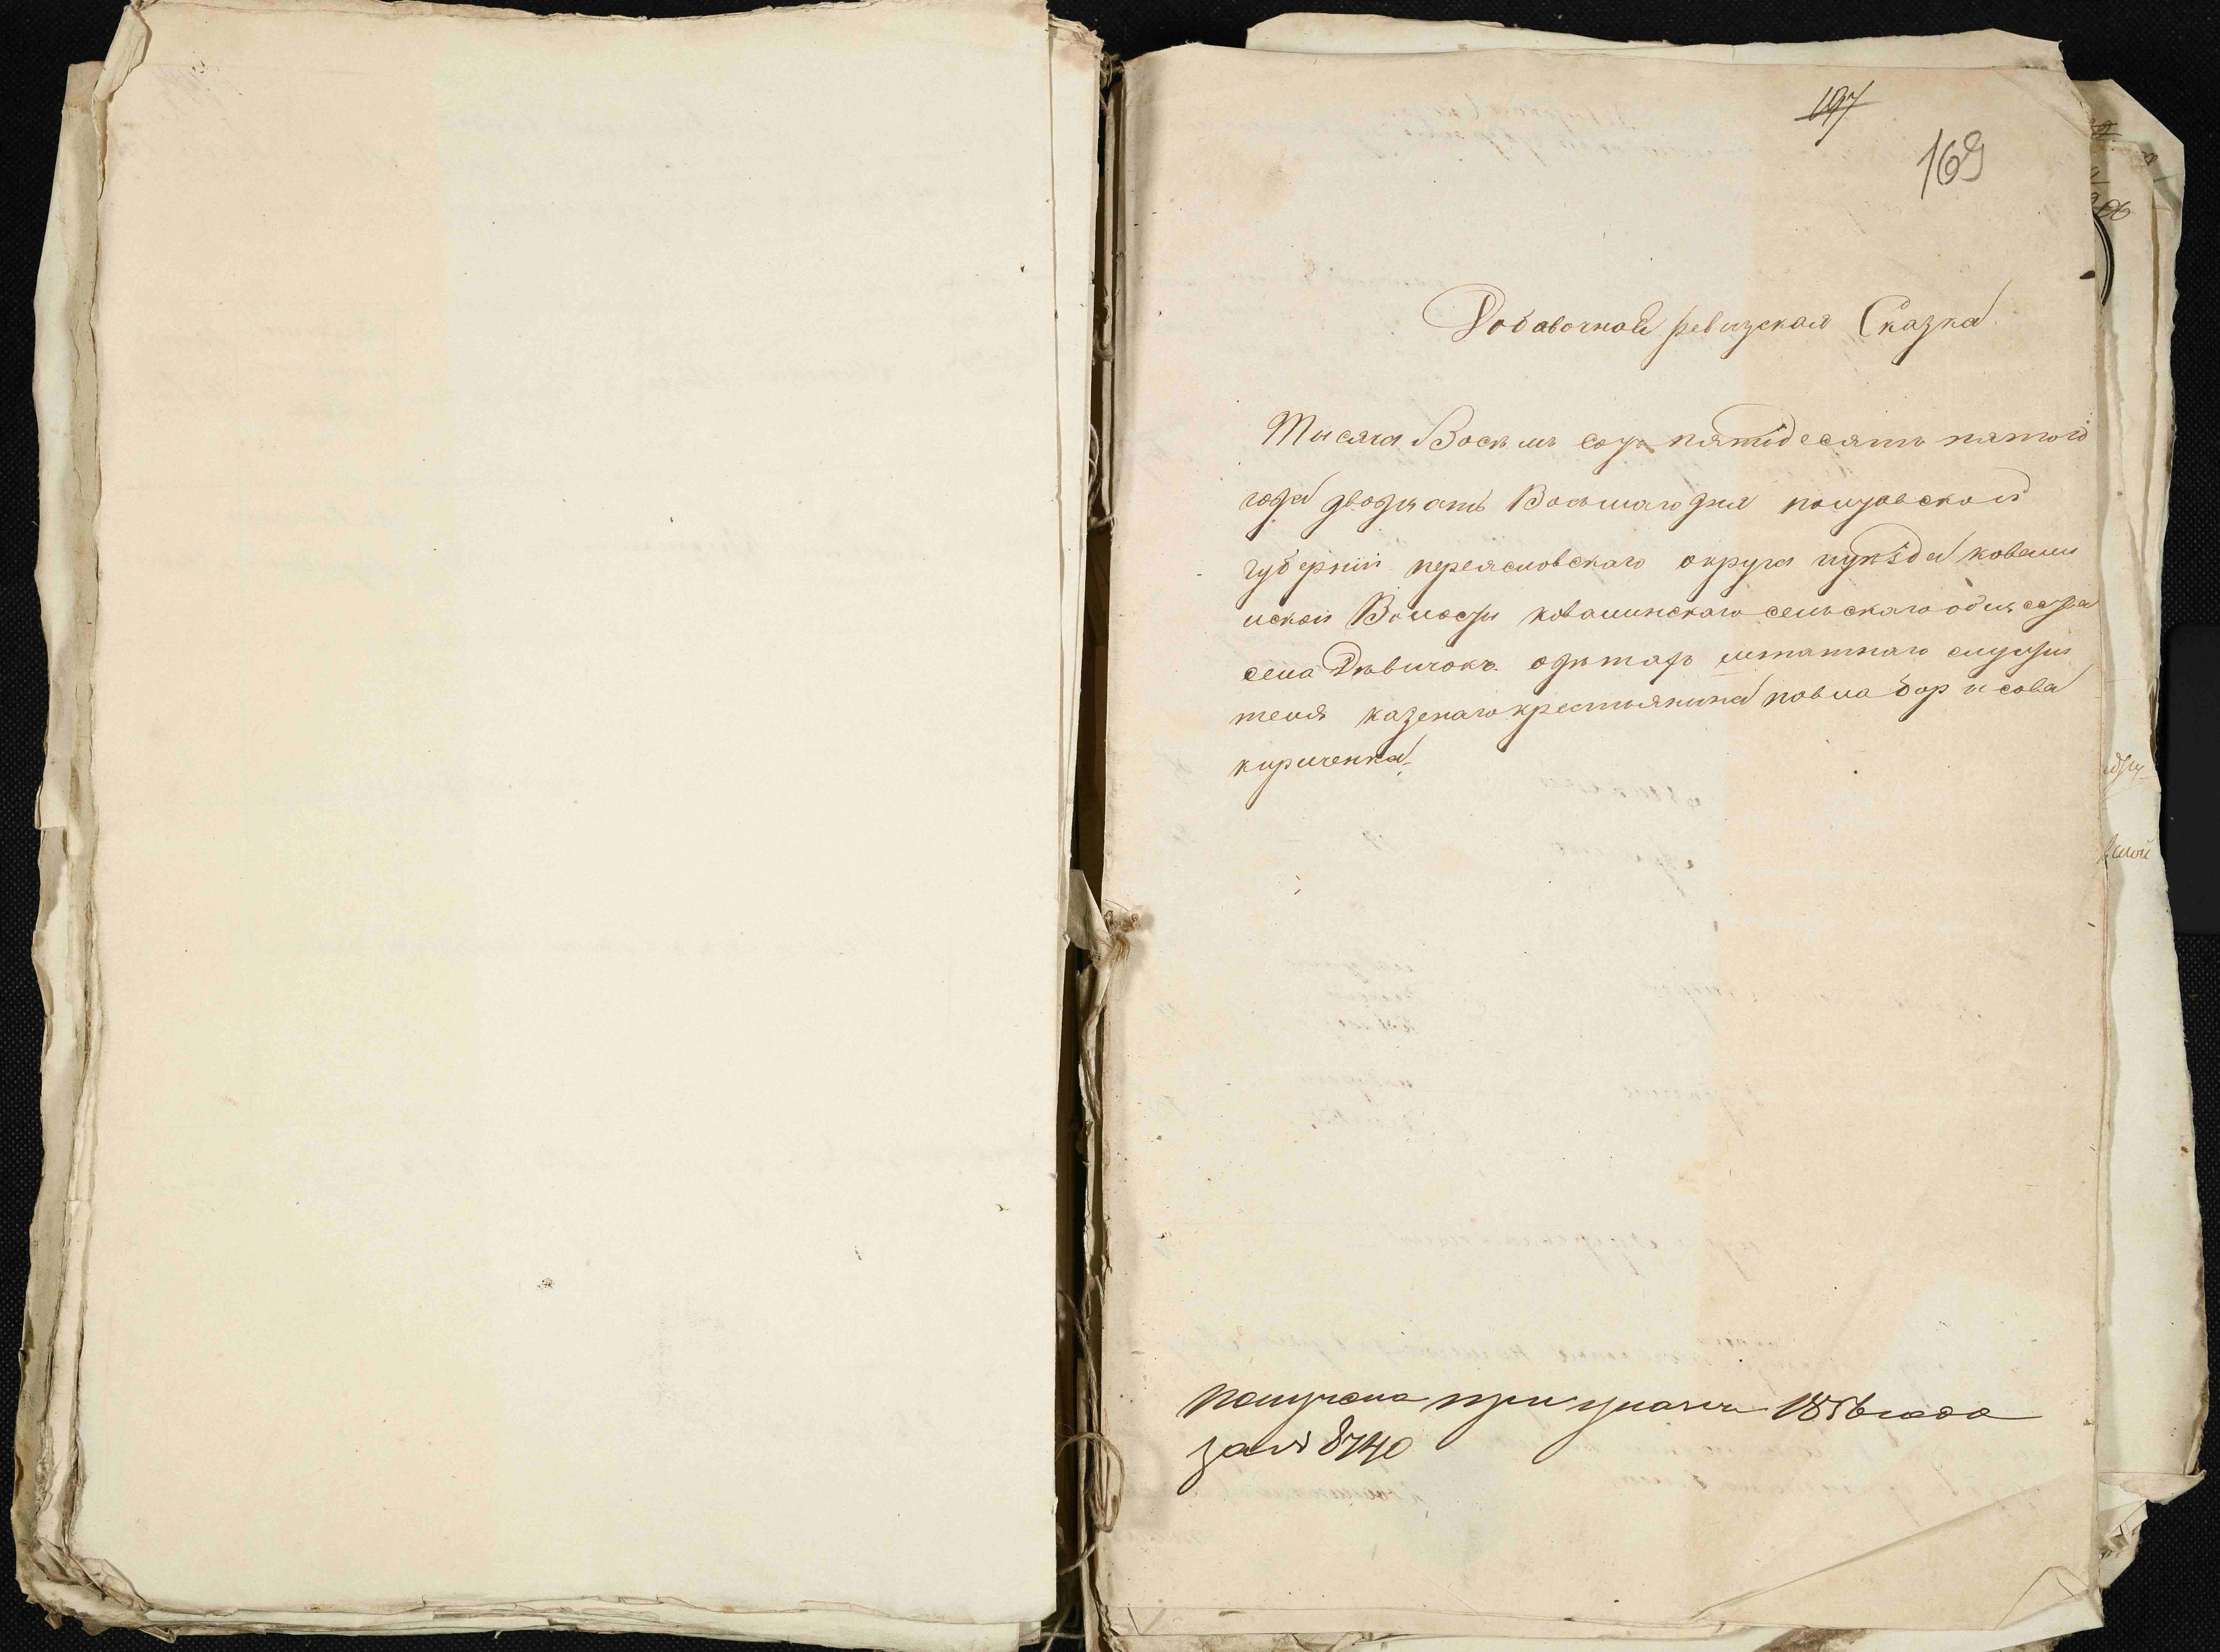 197
169
Добавочная ревизская Сказка
Тысяча Восемь сотъ пятидесятъ пятого
года двадцать Восмаго дня полтавской
губернии переясловскаго округа куезда ковали
нской Волости ковалинскаго сельскаго общества
села Дѣвичокъ одѣтахъ штатнаго служи
теля казенаго крестьянина павла борисова
кириченка
получена при 1856 года
за № 8740